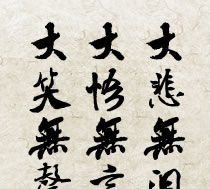 大悲無泪
大悟無言
大笑無聲